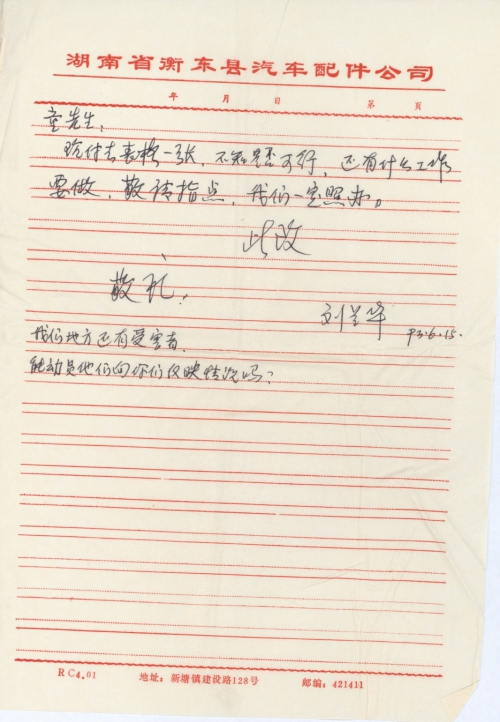 湖南省衡东县汽车配件公司
年 月 日 第 页
童先生:
现付去表格一张,不知是否可行,还有什么工作
要做,敬请指点,我们一定照办。
此致
敬礼!
刘兰华 93.6.15.
我们地方还有受害者,
能动员他们向你们反映情况吗?
RC4.01 地址:新塘镇建设路128号 邮编:421411